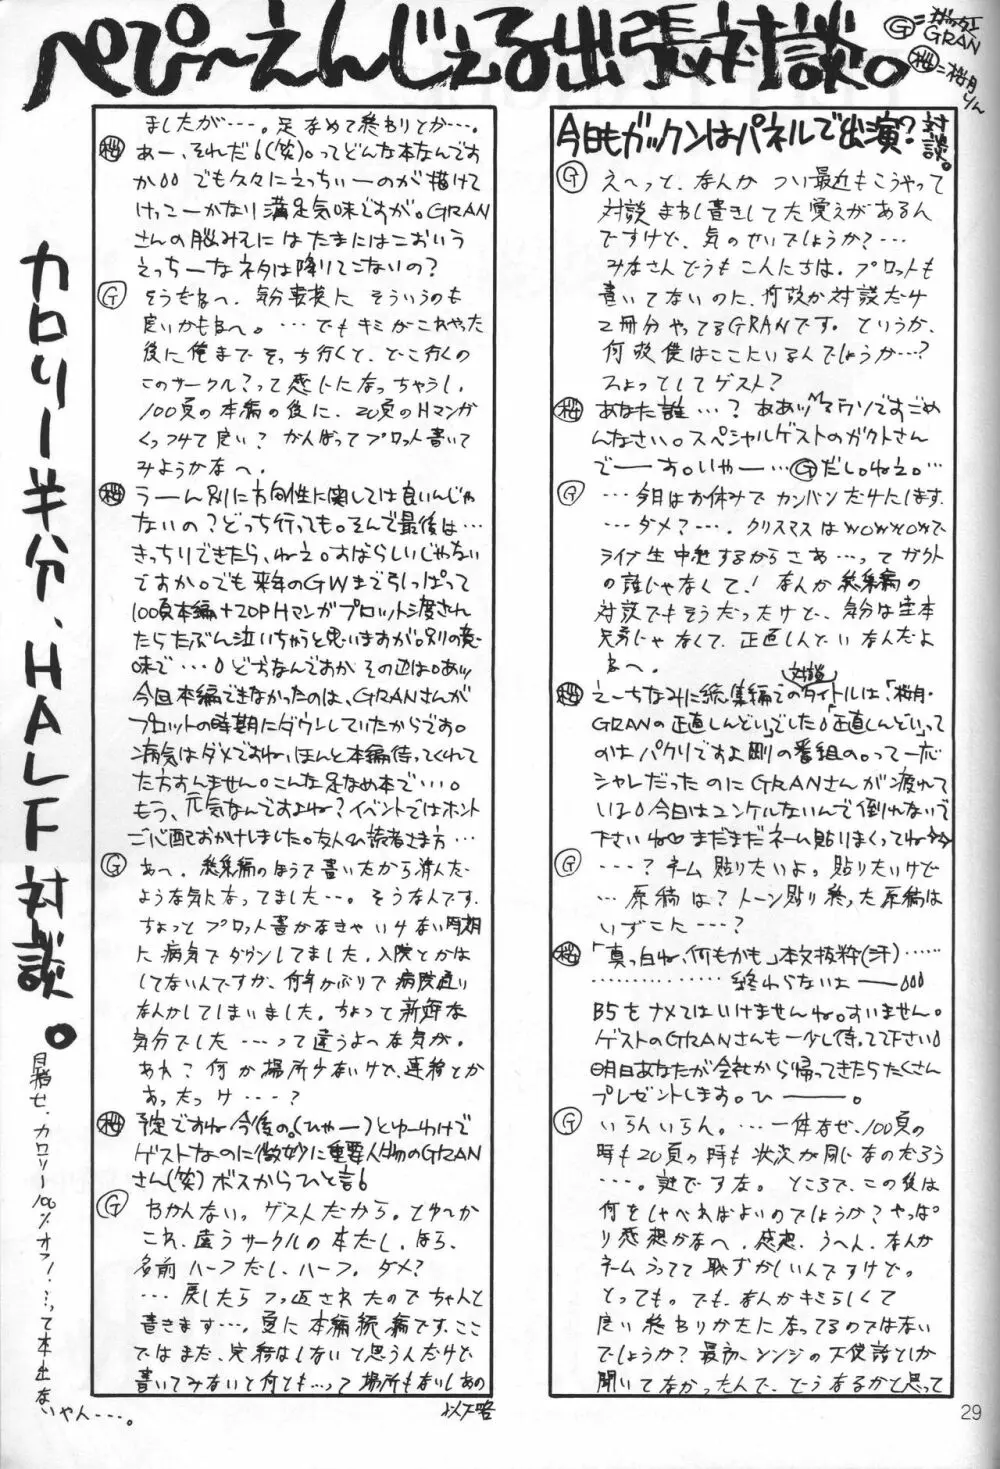 ぺぴ〜えんじぇる出張対談。
Ⓖ=ガックン
GRAN
桜=桜月りん
カロリー半分、HALF対談。
目指せ、カロリー100%オフ!…って本出ないやん---。
今日もガックンはパネルで出演?対談。
Ⓖ えへっと、なんか つい最近もこうやって
対談まわし書きしてた覚えがあるん
ですけど、気のせいでしょうか?…
みなさんどうもこんにちは。プロットも
書いてないのに、何故か対談だけ
2冊分やってるGRANです。というか、
何故僕はここにいるんでしょうか…?
ひょっとしてゲスト?
桜 あなた誰…?ああッウソですごめ
んなさい。スペシャルゲストのガクトさん
でーす。いやー…Ⓖだし。ねえ。…
Ⓖ …今日はお休みでカンバンだけにします。
--ダメ?---。クリスマスはWOWOWで
ライブ生中継するからさあ…ってガクト
の誰じゃなくて!なんか総集編の
対談でもそうだったけど、気分は圭本
兄弟じゃなくて、正直しんどいなんだよ
なへ。
桜 えーちなみに総集編での対談タイトルは、「桜月・
GRANの正直しんどい」でした。「正直しんどい」って
のはパクリですよ剛の番組の。って一応
シャレだったのにGRANさんが疲れて
いる。今日はユンケルないんで倒れないで
下さいね♡まだまだネーム貼りまくってね
Ⓖ ----?ネーム貼りたいよ。貼りたいけど
…原稿は?トーン貼り終った原稿は
いずこに---?
桜 「真っ白ね、何もかも」本文抜粋(汗)……
……………終わらないよー
B5をナメてはいけませんね。すいません。
ゲストのGRANさんも一少し待って下さい
明日あなたが会社から帰ってきたらたくさん
プレゼントします。ひ———。
Ⓖ いらんいらん。…一体なぜ、100頁の
時も20頁の時も状況が同じなのだろう
---。謎ですな。ところで、この後は
何をしゃべればよいのでしょうか?やっぱ
り感想かなへ。感想。うへん、なんか
ネームうってて恥ずかしいんですけど。
とっても。でも、なんかキミらしくて
良い終わりかたになってるのではない
でしょうか?最初、シンジの天使話としか
聞いてなかったんで、どうなるかと思って
ましたが---。足なめて終わりとか---。
桜 あー、それだ6(笑)。ってどんな本なんですか
でも久々にえっちぃーのが描けて
けっこーかなり満足気味ですが。GRAN
さんの脳みそにはたまにはこおいう
えっちーなネタは降りてこないの?
Ⓖ そうだなへ、気分転換にそういうのも
良いかもなへ。…でもキミがこれやった
後に俺までそっち行くと、どこ行くの
このサークル?って感じになっちゃうし。
100頁の本編の後に、20頁のHマンガ
くっつけて良い?がんばってプロット書いて
みようかなへ。
桜 うーん別に方向性に関しては良いんじゃ
ないの?どっち行っても。そんで最後は…
きっちりできたら、ねえ。すばらしいじゃない
ですか。でも来年のGWまで引っぱって
100頁本編+20PHマンガプロット渡され
たらたぶん泣いちゃうと思いますが。別の意
味で…。どおなんですかその辺は。あッ
今回本編できなかったのは、GRANさんが
プロットの時期にダウンしていたからです。
病気はダメですね、ほんと本編待っててくれて
た方すんません。こんな足なめ本で…。
もう、元気なんですよね?イベントではホント
ご心配おかけしました。友人&読者さま方…
Ⓖ あへ、総集編のほうで書いたから済んだ
ような気になってました…。そうなんです。
ちょっとプロット書かなきゃいけない時期
に病気でダウンしてました。入院とかは
してないんですが、何年かぶりで病院通い
なんかしてしまいました。ちょっと新鮮な
気分でした---って違うよへな気が。
あれ?何か場所少ないけど、連絡とか
あったっけ---?
桜 予定ですね今後の。(ひゃー)とゆーわけで
ゲストなのに微妙に重要人物のGRAN
さん(笑)ボスからひと言6
Ⓖ わかんないっ、ゲストだから。とゆーか
これ、違うサークルの本だし。ほら、
名前ハーフだし、ハーフ。ダメ?
…戻したらつっ返されたのでちゃんと
書きます---。夏に本編続編です。ここ
ではまた、完結はしないと思うんだけど
書いてみないと何とも…って場所もないしあの
以下略
29